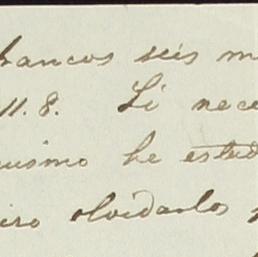 francos seis m
11.8. Si nece
mismo he estud
iro olvidarlos